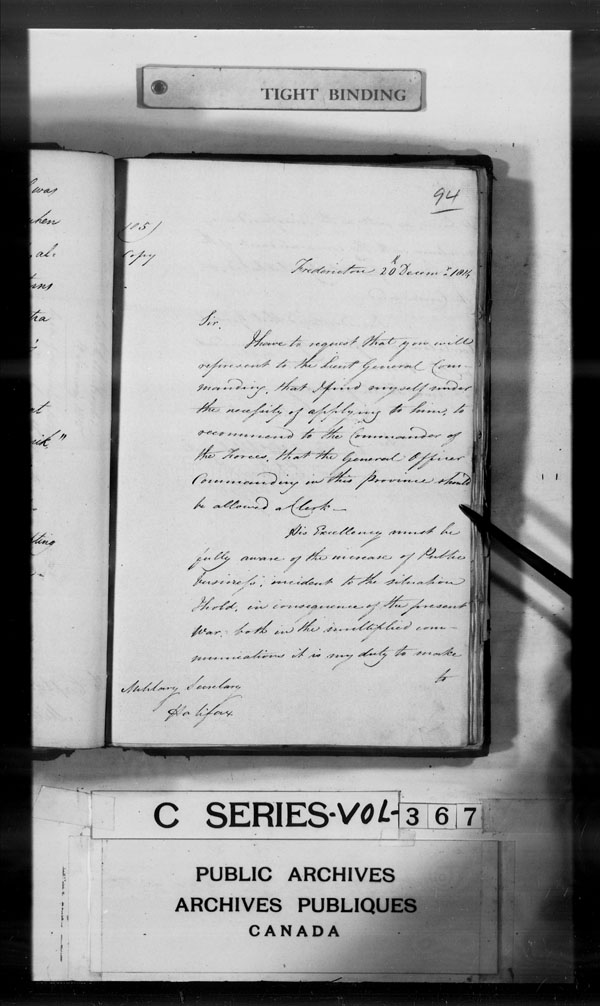 TIGHT BINDING
94
(105)
Copy
Fredericton 20th Decemr. 1814
Sir,
I have to request that you will
represent to the Lieut General Com-
manding, that I find myself under
the necessity of applying to him, to
recommend to the Commander of
the Forces, that the General Officer
Commanding in this Province should
be allowed a Clerk —
His Excellency must be
fully aware of the increase of Public
business, incident to the situation
I hold, in consequence of the present
War, both in the multiplied com-
munications it is my duty to make
to
Military Secretary
Halifax
C SERIES-VOL-367
PUBLIC ARCHIVES
ARCHIVES PUBLIQUES
CANADA